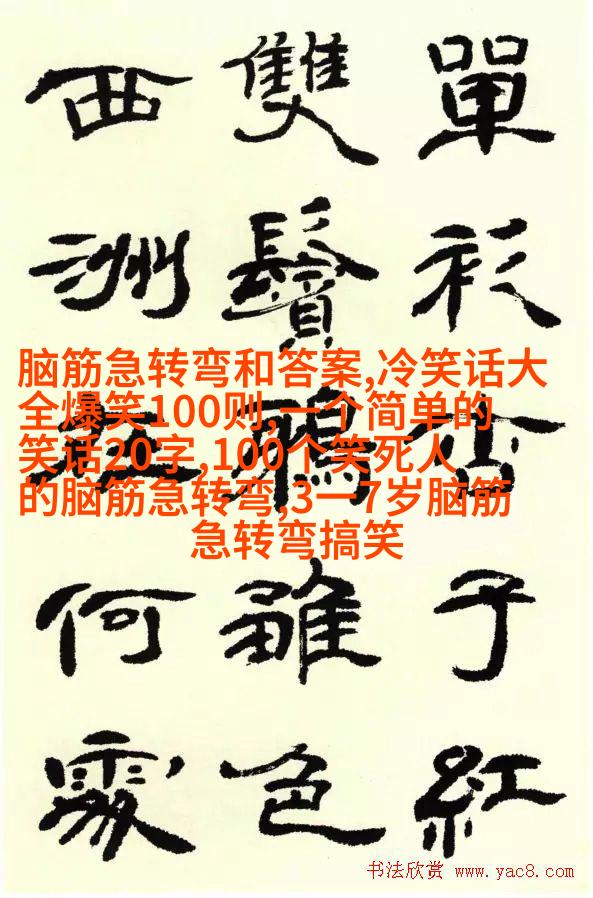 單衫杏子紅
雙鬢鴉雛色
西洲何處
脑筋急转弯和答案,冷笑话大
全爆笑100则,一个简单的
笑话20字,100个笑死人
的脑筋急转弯,3一7岁脑筋
急转弯搞笑
书法欣赏 www.yac8.com